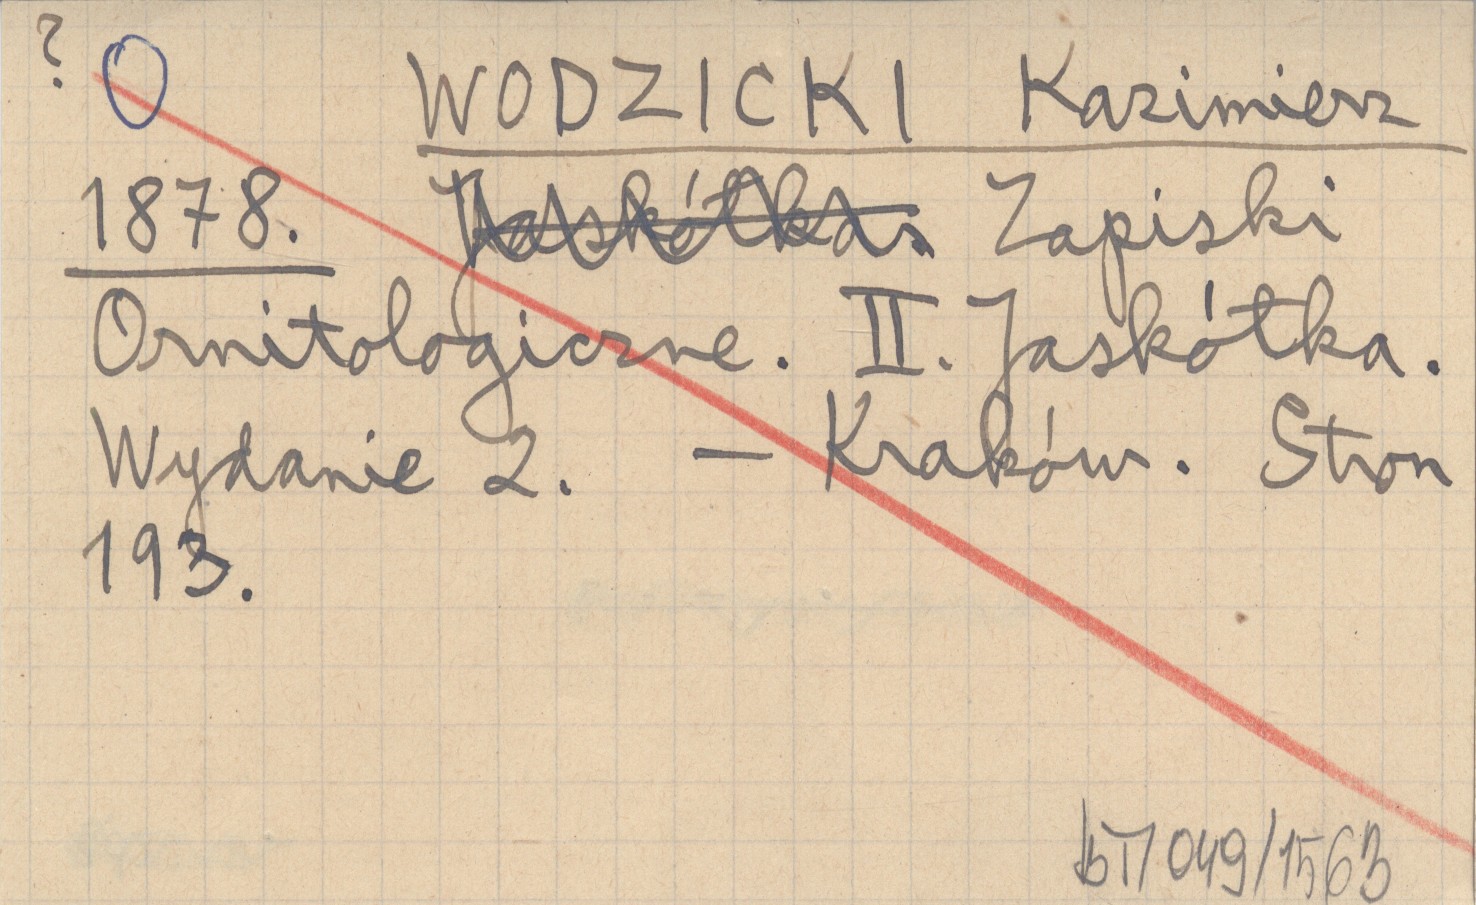 ? O
WODZICKI Kazimierz
1878. Jaskółka. Zapiski
Ornitologiczne. II. Jaskółka.
Wydanie 2. — Kraków. Stron
193.
bT/049/1563